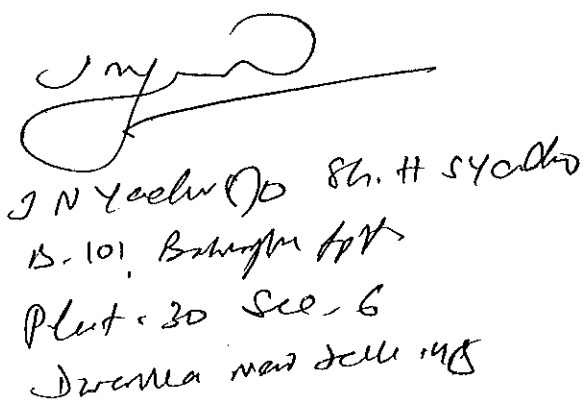 J N Yadav S/o Sh. H S Yadav
B-101, Apptt
Plot-30 Sec-6
Dwarka New Delhi